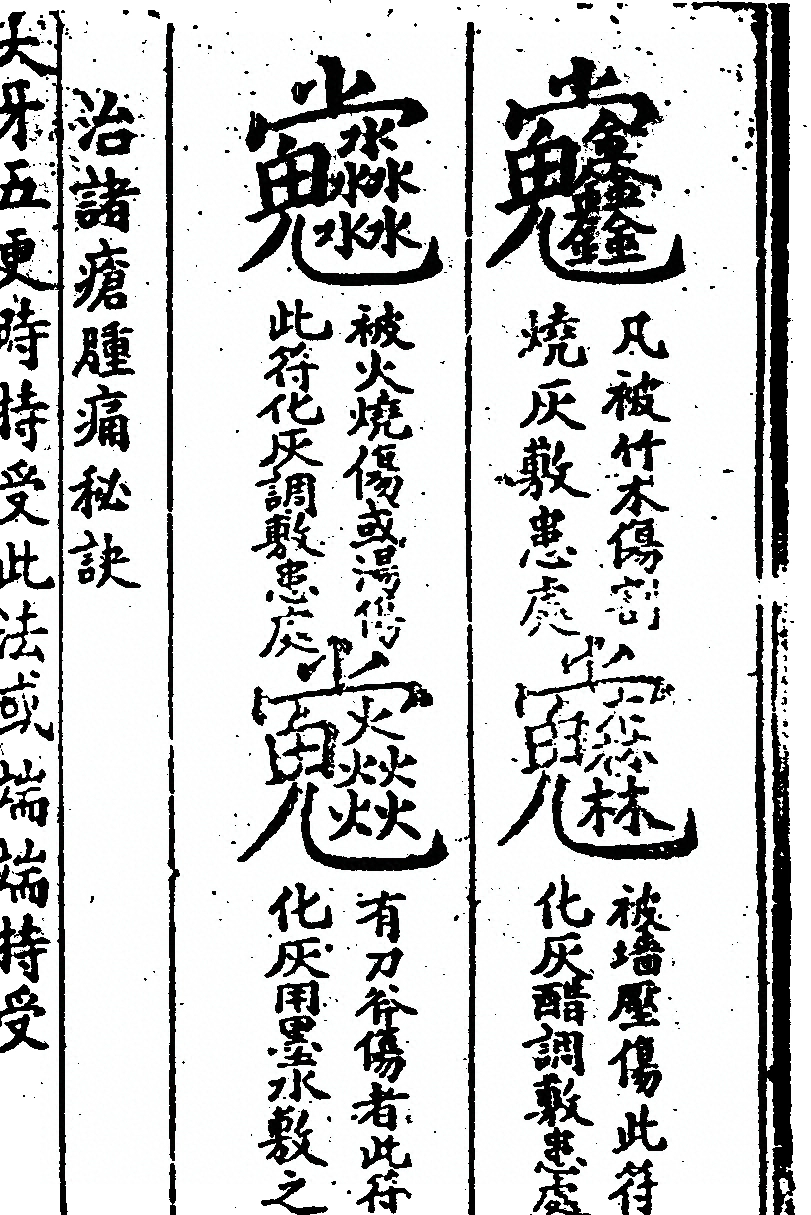 凡被竹木傷割
燒灰敷患處
被墻壓傷此符
化灰醋調敷患處
被火燒傷或湯傷
此符化灰調敷患處
有刀斧傷者此符
化灰用墨水敷之
治諸瘡腫痛秘訣
五更時持受此法或端端持受